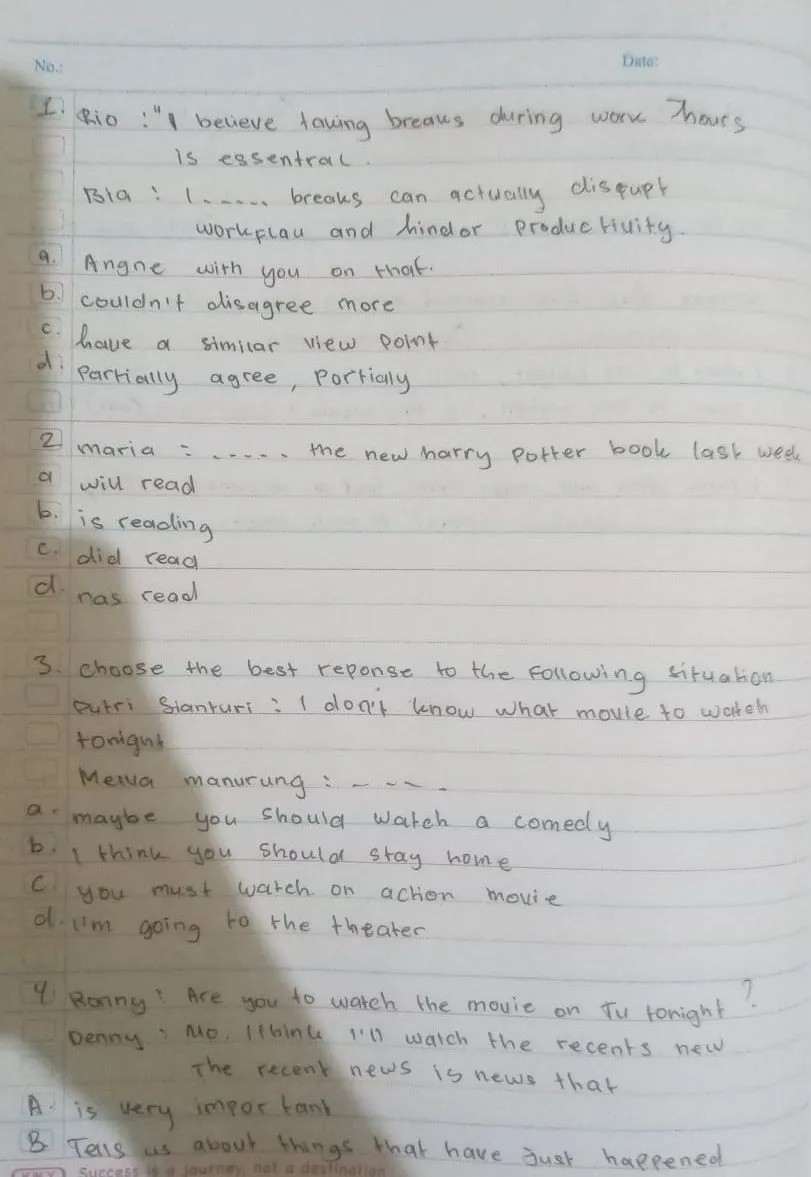 No.:
Date:
1. Rio : "I believe taking breaks during work hours
is essentral.
Bia : I...... breaks can actually disrupt
workplau and hindor productivity.
a. Angne with you on that.
b. couldn't disagree more
c. have a similar view point
d. Partially agree, Portialy
2 maria : ..... the new harry Potter book last week
a will read
b. is reading
c. did read
d. has read
3. choose the best reponse to the Following situation
Putri Sianturi : I don't know what movie to watch
tonight
manurung : - - - .
a. maybe you should watch a comedy
b. I think you should stay home
c you must watch on action movie
d. I'm going to the theater
4. Ronny : Are you to watch the movie on TV tonight?
Denny : No. I think I'll watch the recents new
The recent news is news that
A. is very important
B Tells us about things that have Just happened
Success is a journey, not a destination